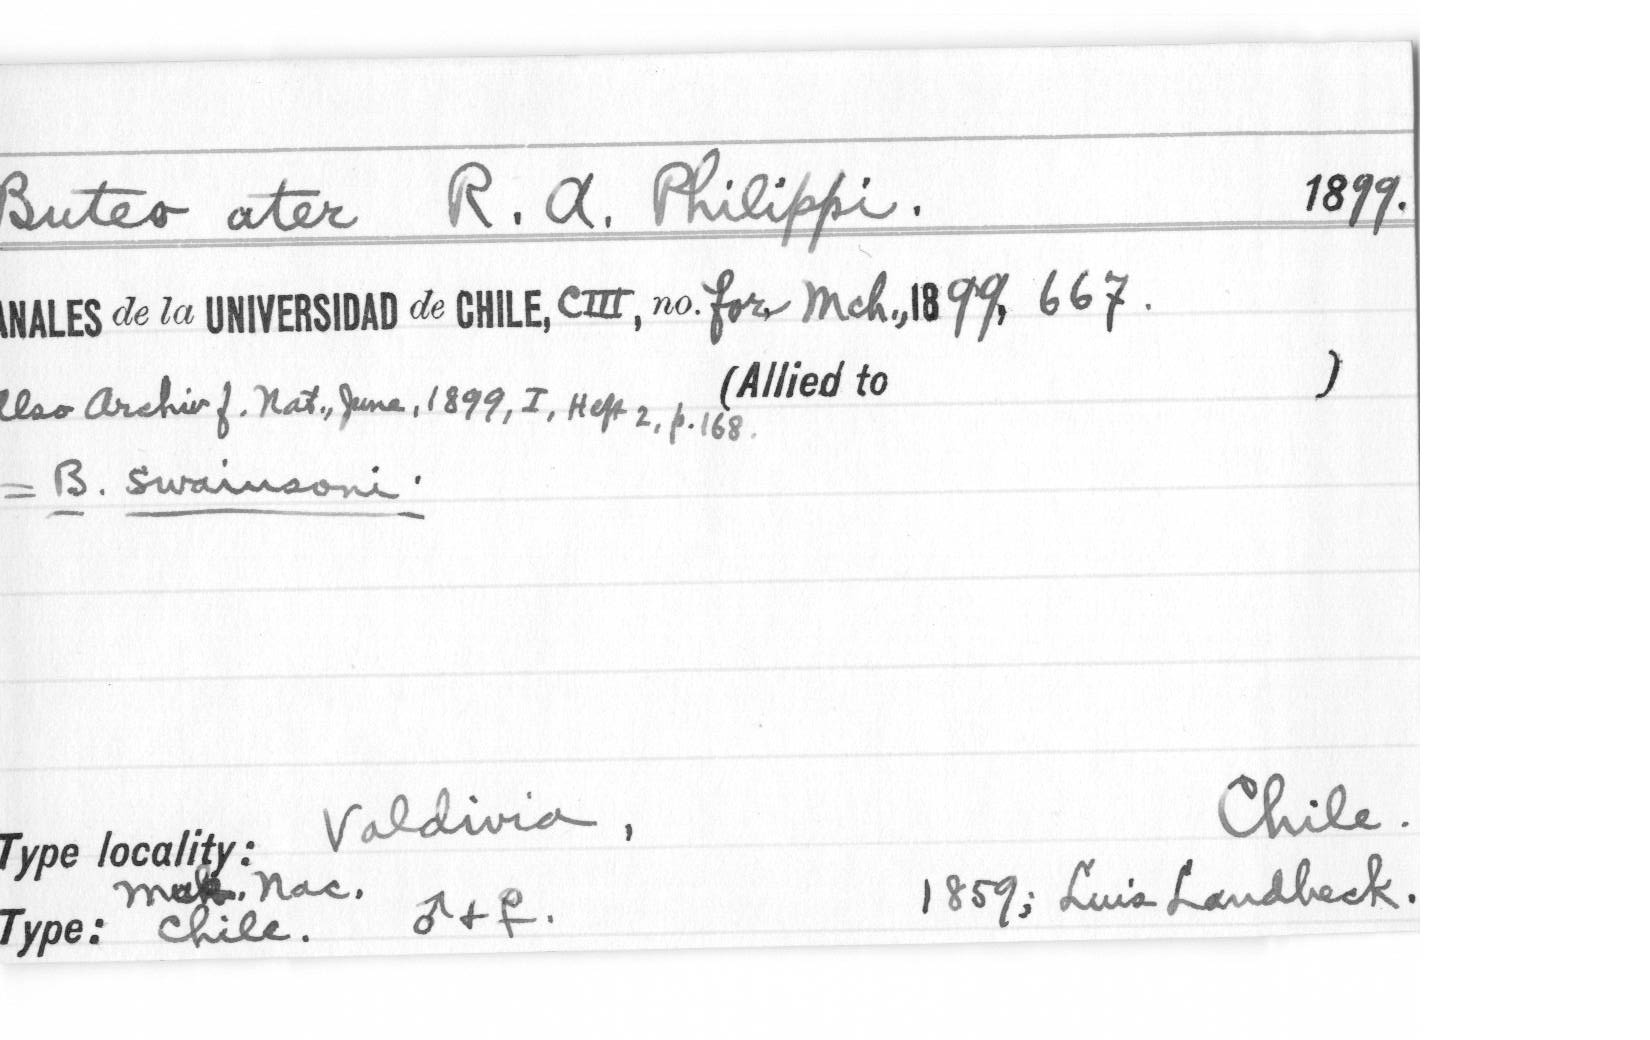 Buteo ater R. A. Philippi. 1899.
ANALES de la UNIVERSIDAD de CHILE, CIII, no. for Mch., 1899, 667.
(Allied to )
Also Archiv f. Nat., June, 1899, I, Heft 2, p. 168.
= B. swainsoni.
Type locality: Valdivia, Chile.
Nac.
Type: Chile. ♂ + ♀. 1859; Luis Landbeck.